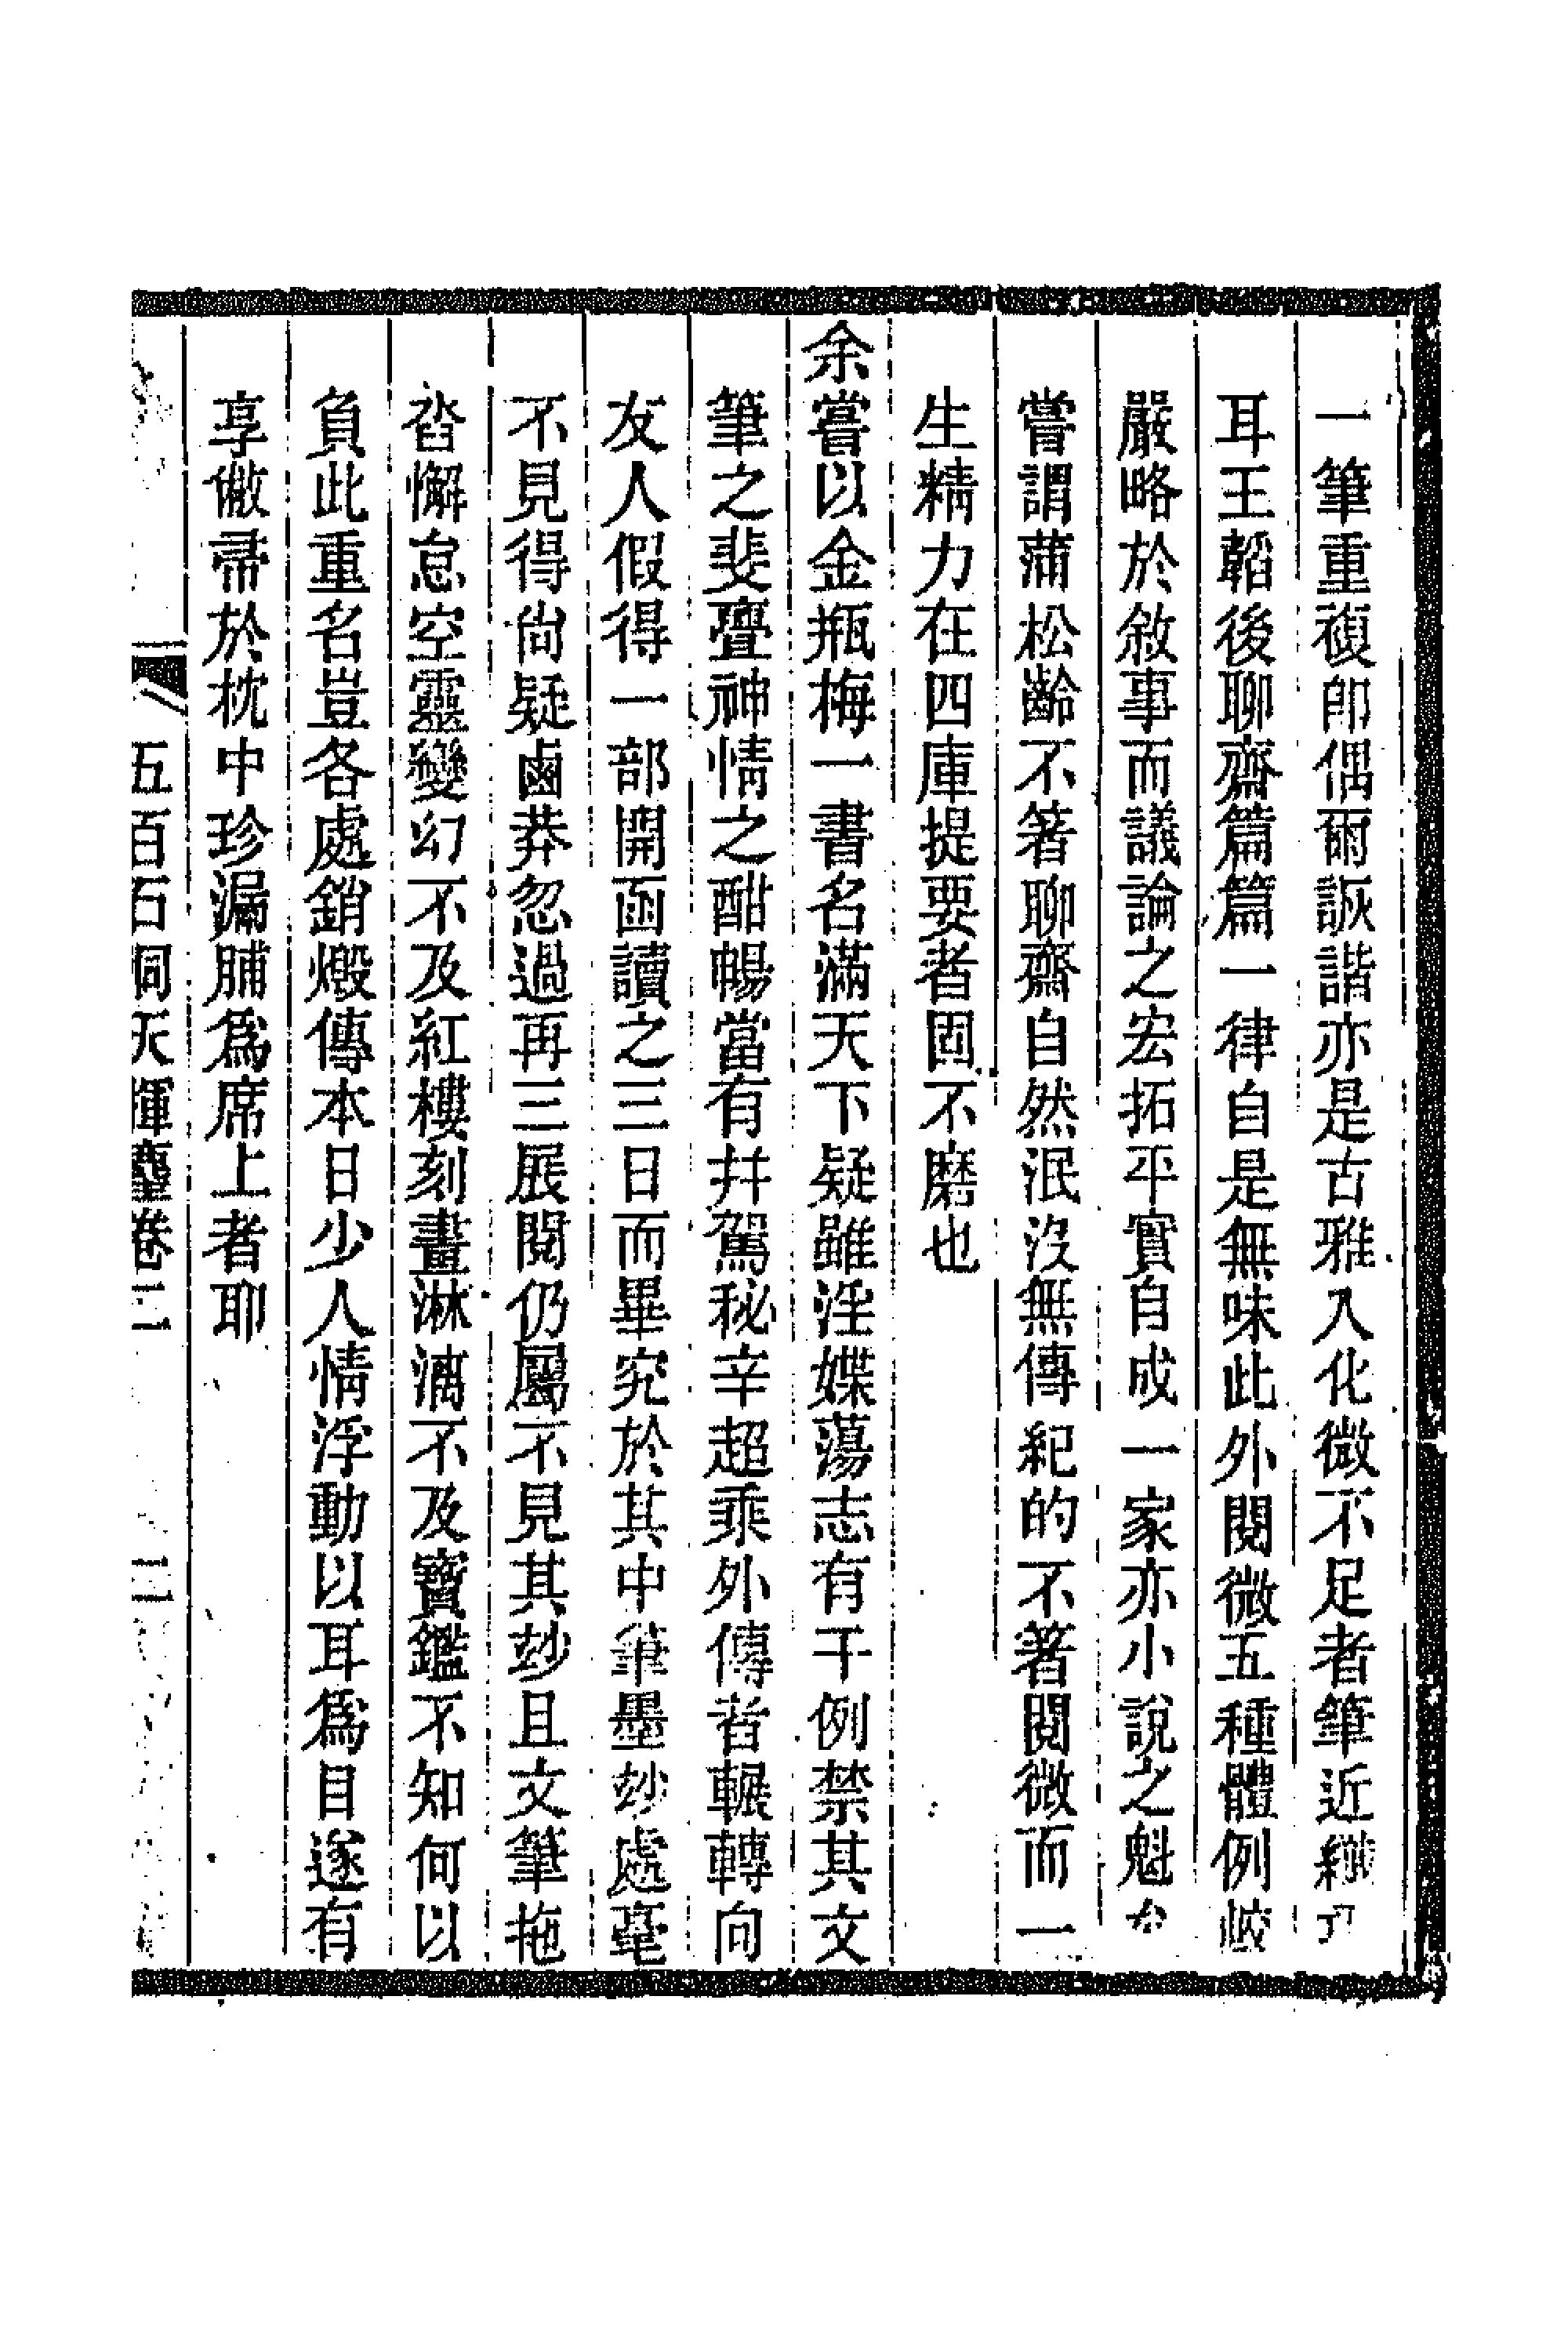 一筆重複卽偶爾詼諧亦是古雅入化微不足者筆近纖巧
耳王韜後聊齋篇篇一律自是無味此外閱微五種體例較
嚴略於敘事而議論之宏拓平實自成一家亦小說之魁
嘗謂蒲松齡不箸聊齋自然泯沒無傳紀的不箸閱微而一
生精力在四庫提要者固不磨也
余嘗以金瓶梅一書名滿天下疑雖淫媟蕩志有干例禁其文
筆之斐亹神情之酣暢當有幷駕秘辛超乘外傳者輾轉向
友人假得一部開函讀之三日而畢究於其中筆墨玅處毫
不見得尙疑鹵莽忽過再三展閱仍屬不見其玅且文筆拖
沓懈怠空靈變幻不及紅樓刻畫淋漓不及寶鑑不知何以
負此重名豈各處銷燬傳本日少人情浮動以耳爲目遂有
享儆帚於枕中珍漏脯爲席上者耶
五百石洞天揮麈卷二 二